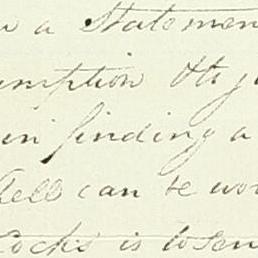 a Statemen
mption the
in finding a
can be wor
Cocks is to sen